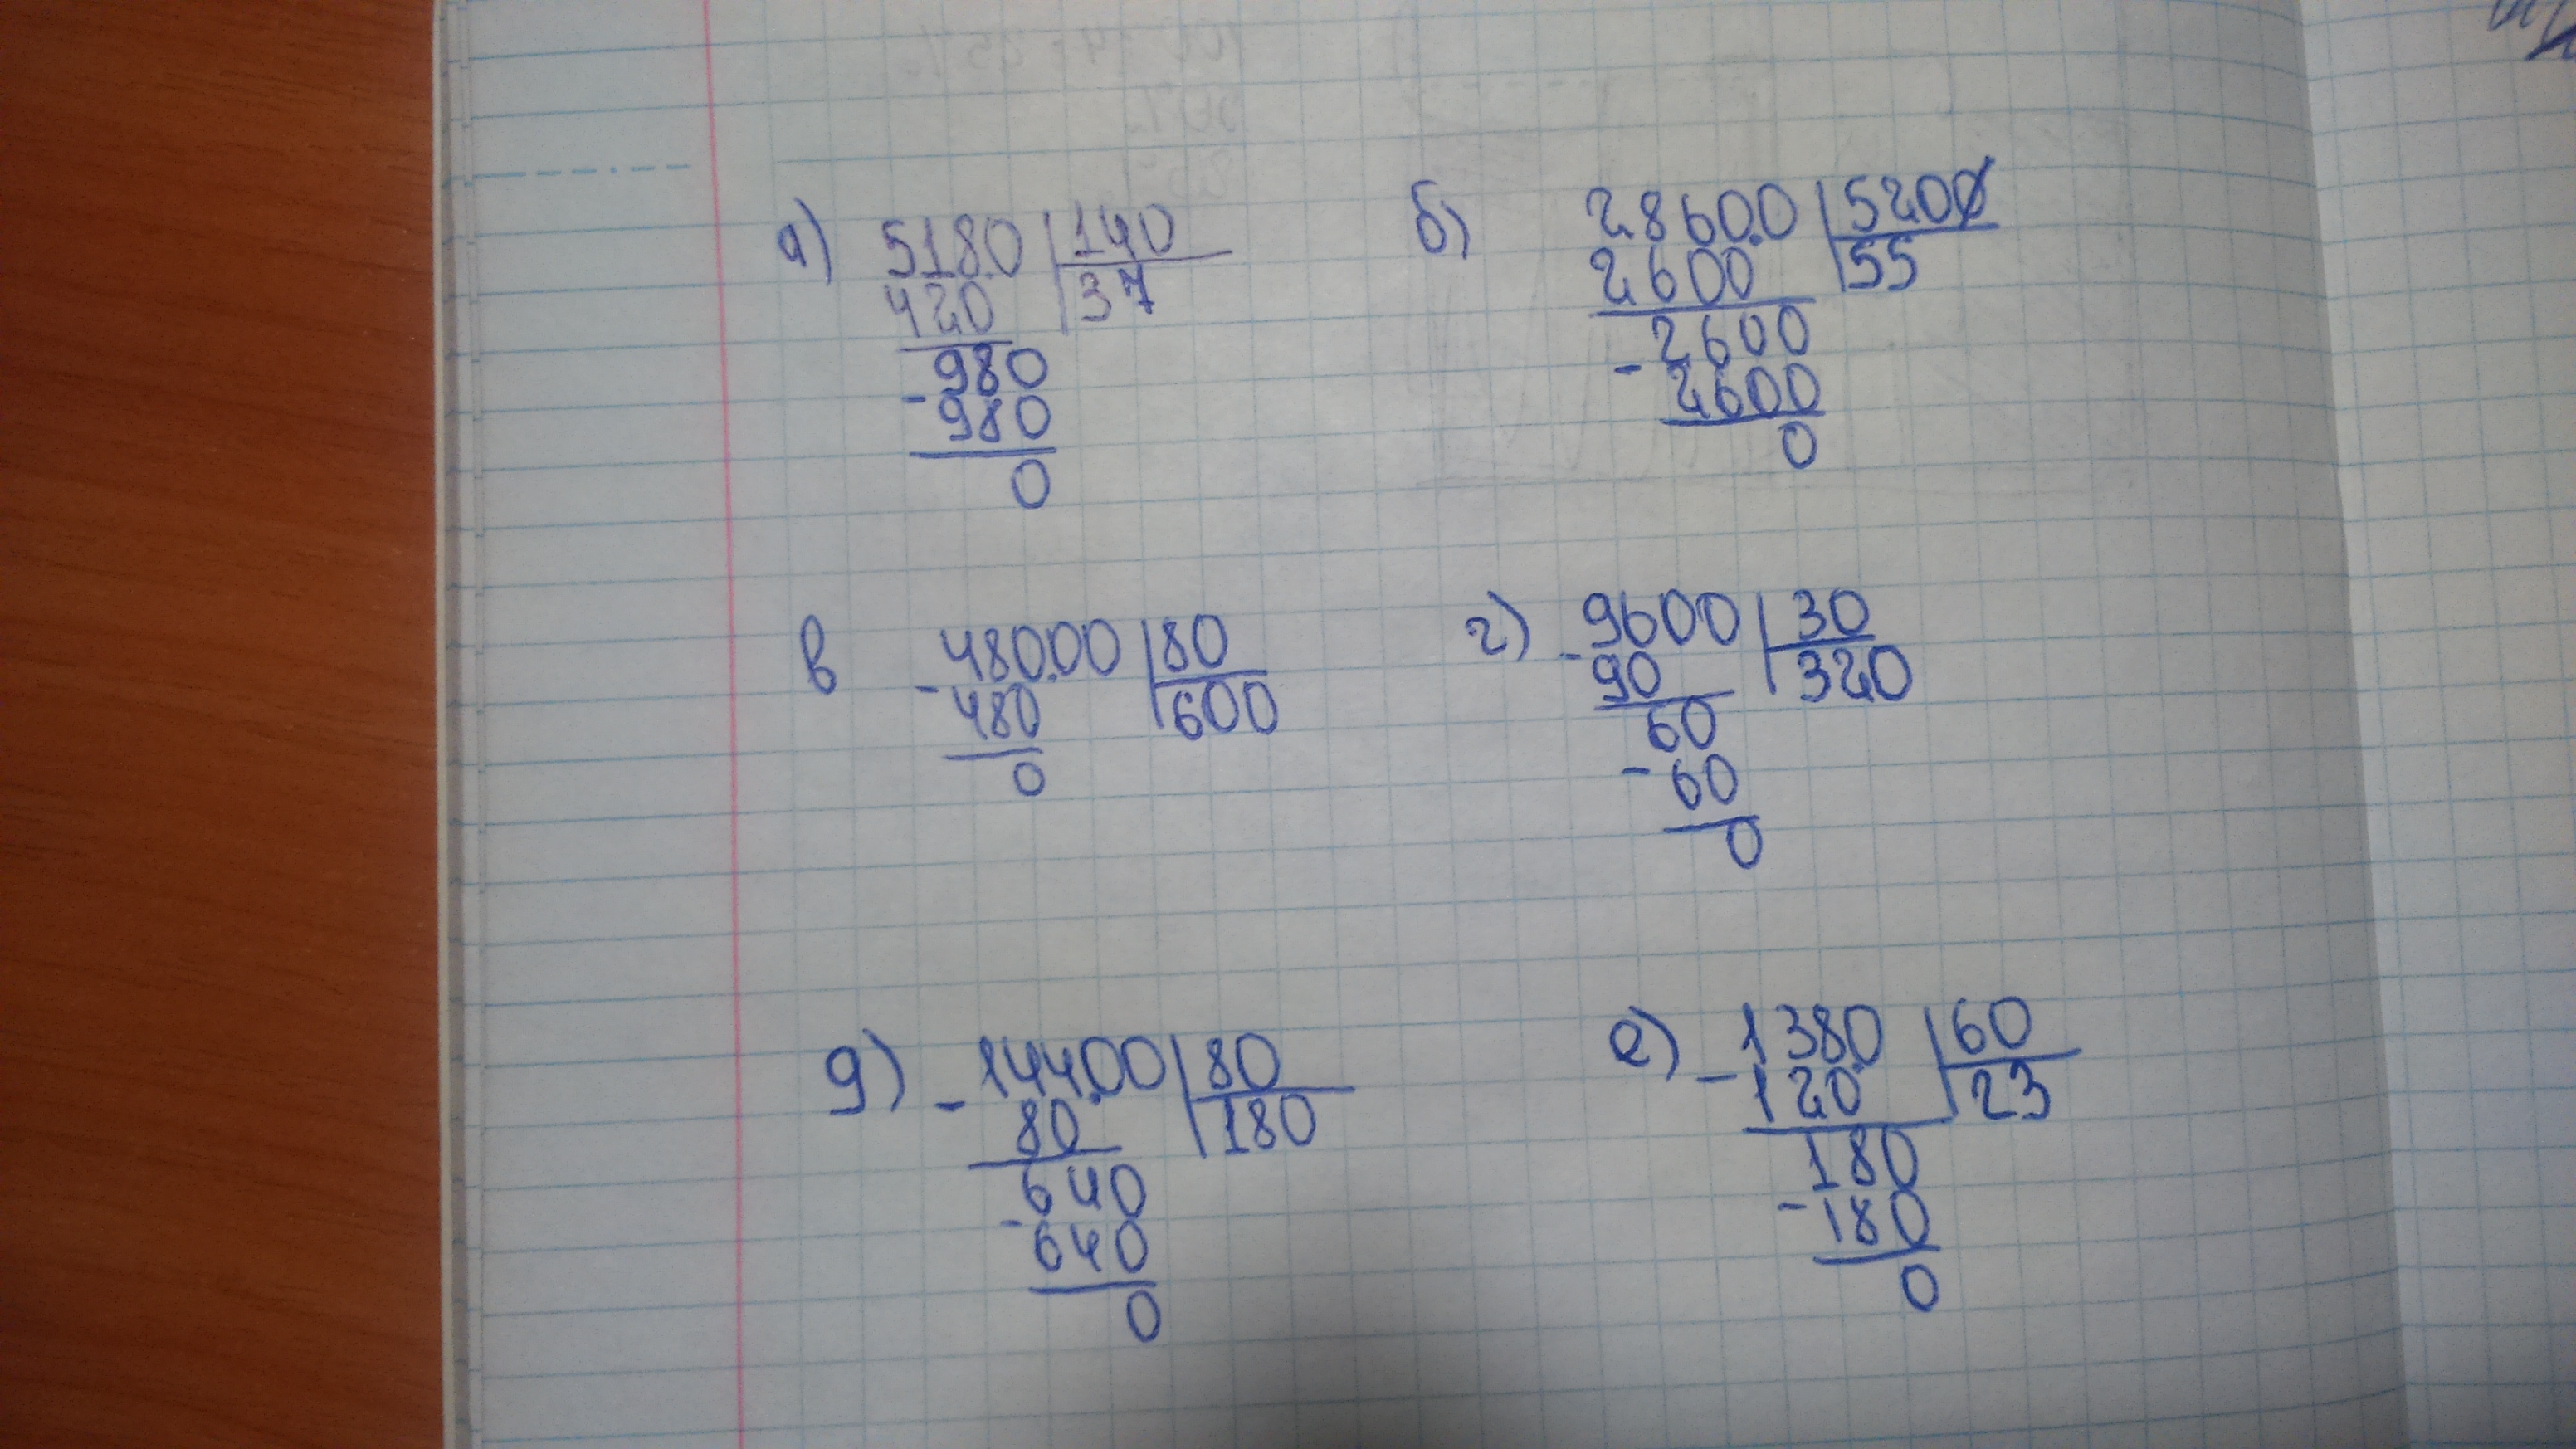 а) 5180 140
420 37
-980
980
0
б) 28600 5200
2600 55
-2600
2600
0
в -48000 80
480 600
0
г) -9600 30
90 320
60
-60
0
д) -14400 80
80 180
-640
640
0
е) -1380 60
120 23
180
-180
0